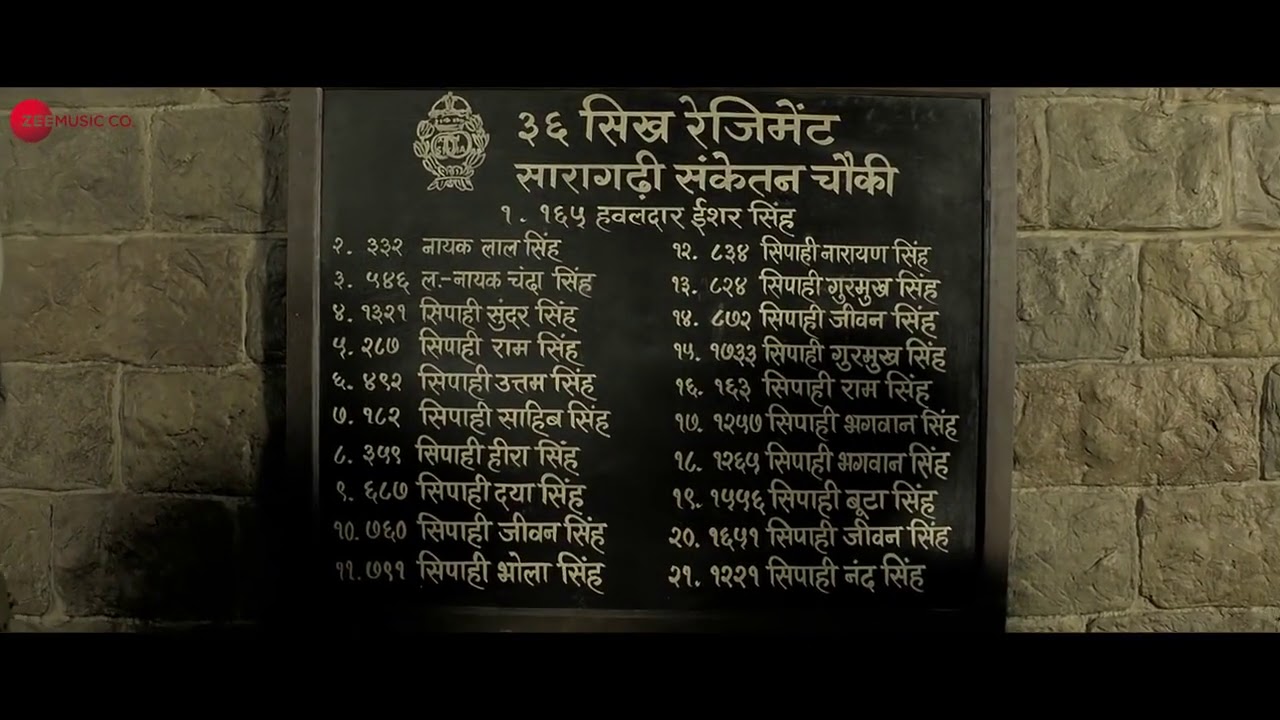 ZEE MUSIC CO.
३६ सिख रेजिमेंट
सारागढ़ी संकेतन चौकी
१. १६५ हवलदार ईशर सिंह
२. ३३२ नायक लाल सिंह
३. ५४६ ल.-नायक चंढा सिंह
४. १३२१ सिपाही सुंदर सिंह
५. २८७ सिपाही राम सिंह
६. ४९२ सिपाही उत्तम सिंह
७. १८२ सिपाही साहिब सिंह
८. ३५९ सिपाही हीरा सिंह
९. ६८७ सिपाही दया सिंह
१०. ७६० सिपाही जीवन सिंह
११. ७९१ सिपाही भोला सिंह
१२. ८३४ सिपाही नारायण सिंह
१३. ८२४ सिपाही गुरमुख सिंह
१४. ८७२ सिपाही जीवन सिंह
१५. १७३३ सिपाही गुरमुख सिंह
१६. १६३ सिपाही राम सिंह
१७. १२५७ सिपाही भगवान सिंह
१८. १२६५ सिपाही भगवान सिंह
१९. १५५६ सिपाही बूटा सिंह
२०. १६५१ सिपाही जीवन सिंह
२१. १२२१ सिपाही नंद सिंह